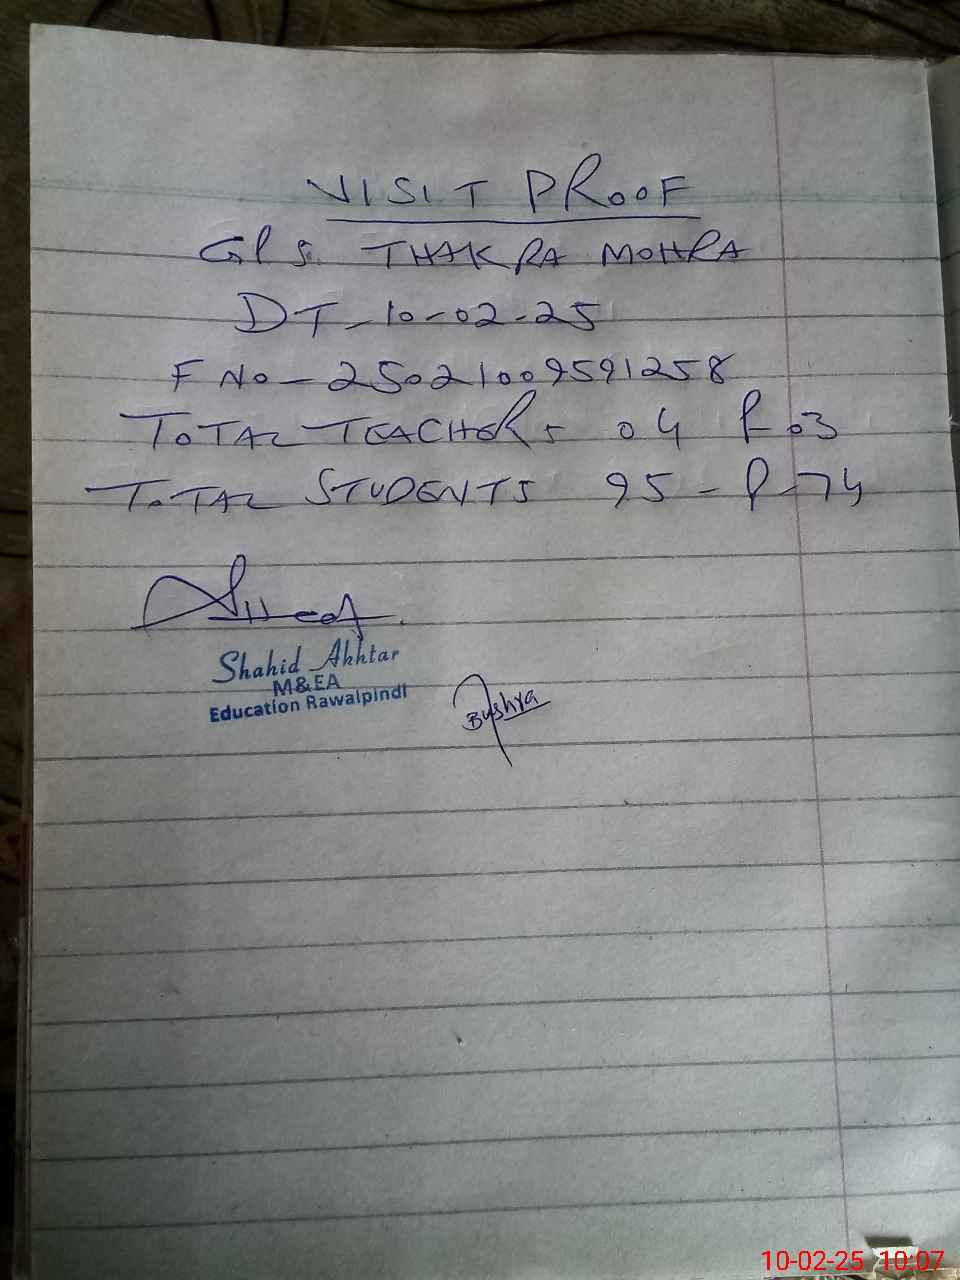 VISIT PROOF
GPS. THAKRA MOHRA
DT-10-02-25
F No - 25021009591258
TOTAL TEACHERS 04 P 03
TOTAL STUDENTS 95 - P-74
Shahid Akhtar
M&EA
Education Rawalpindi
Bushra
10-02-25 10:07